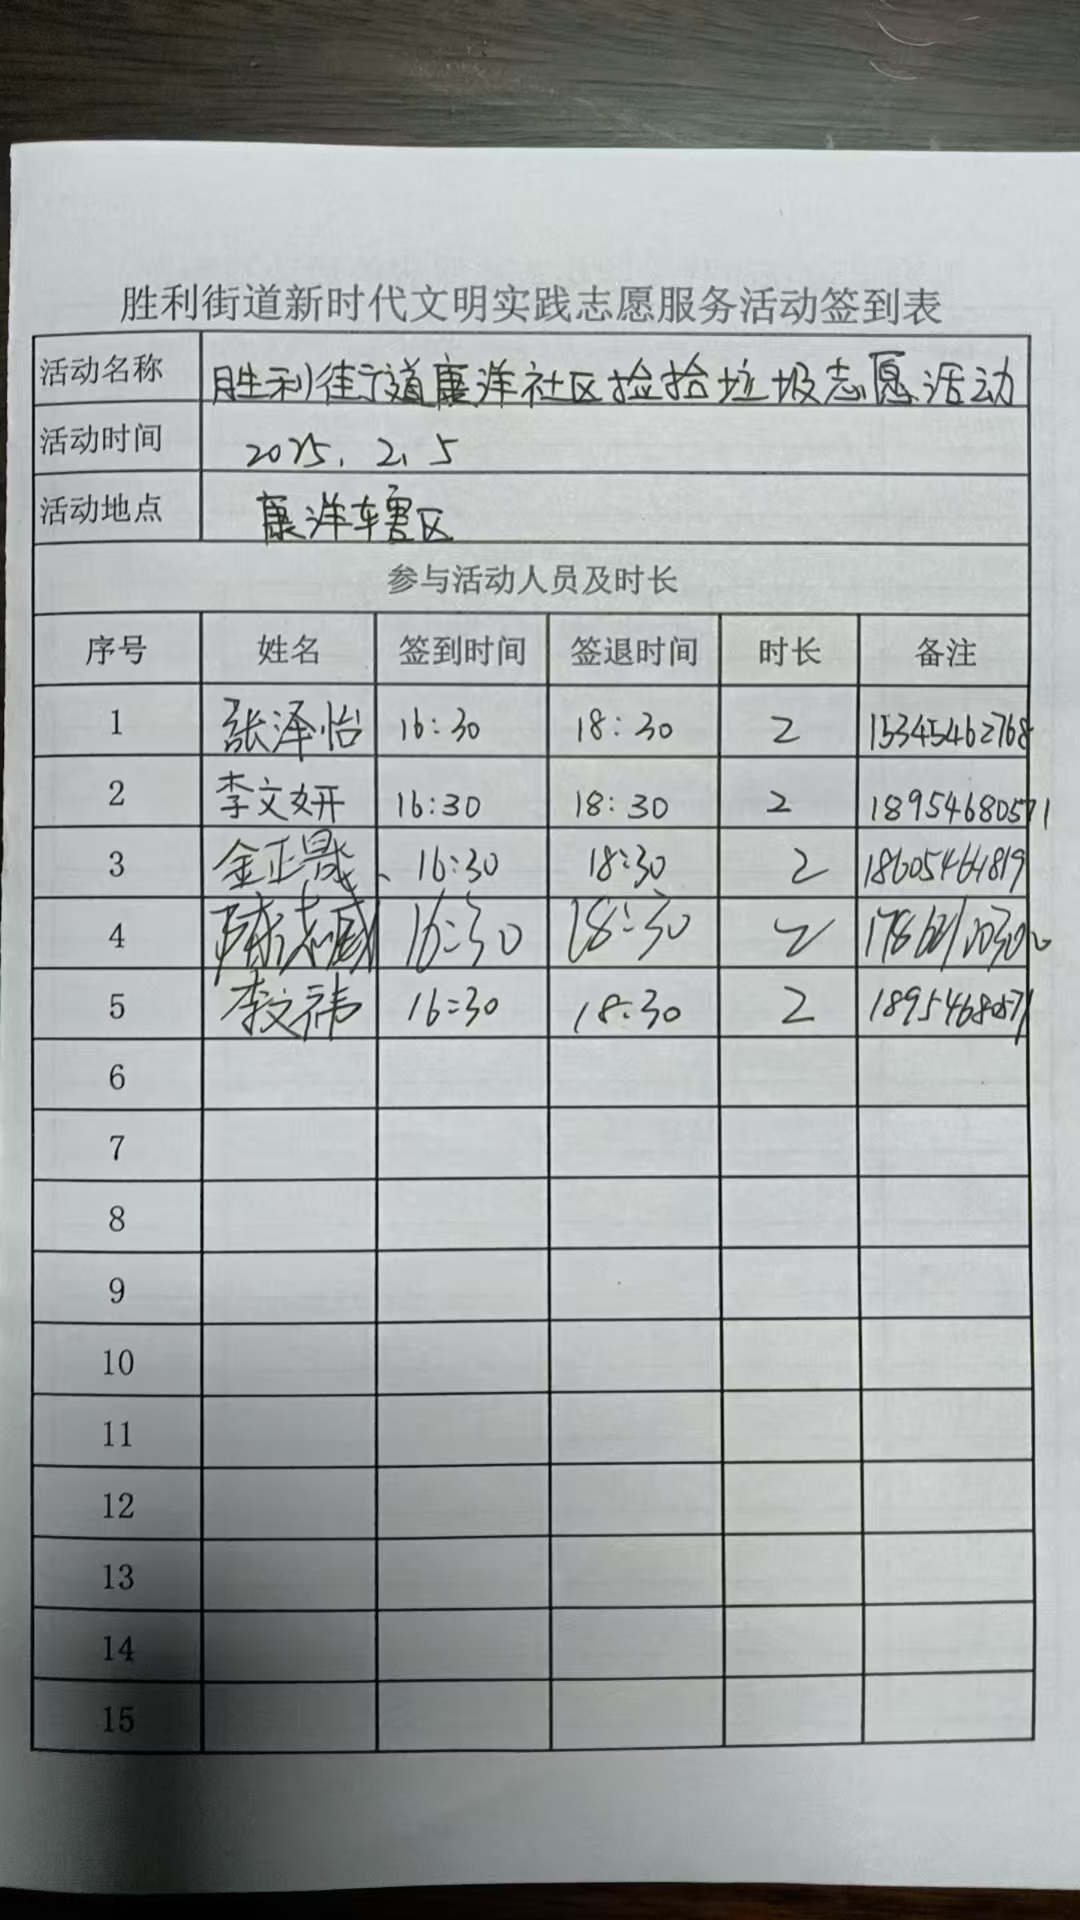 胜利街道新时代文明实践志愿服务活动签到表
活动名称 胜利街道康洋社区捡拾垃圾志愿活动
活动时间 2025.2.5
活动地点 康洋辖区
参与活动人员及时长
序号 姓名 签到时间 签退时间 时长 备注
1 張泽怡 16:30 18:30 2 15345462768
2 李文妍 16:30 18:30 2 18954680571
3 金正晟 16:30 18:30 2 18605461819
4 16:30 18:30 2
5 李文祎 16:30 18:30 2 18954680571
6
7
8
9
10
11
12
13
14
15